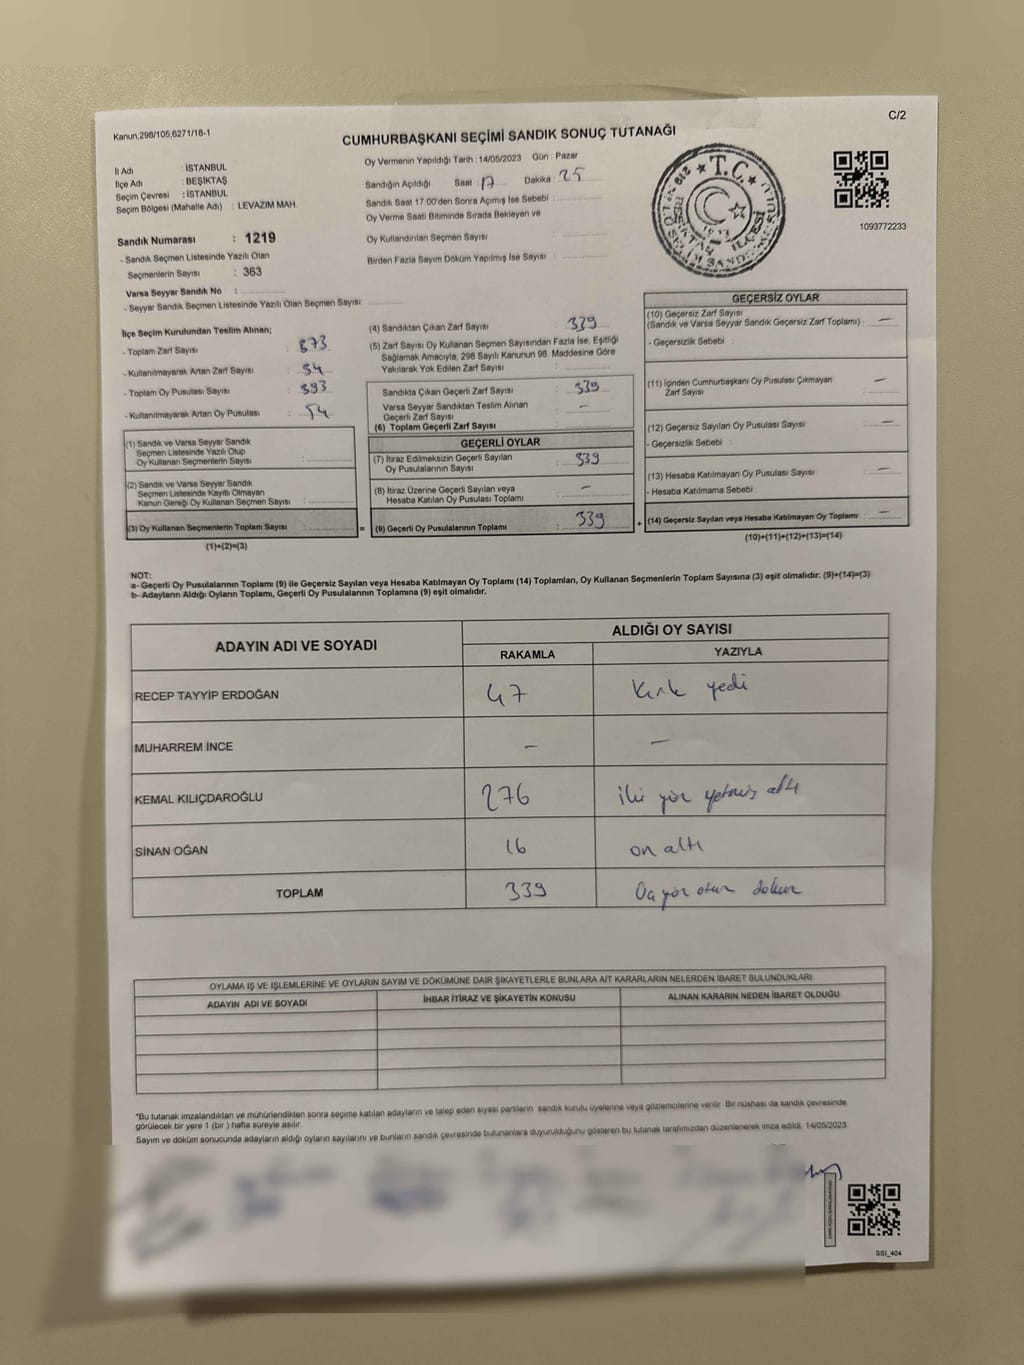 C/2
Kanun,298/105,6271/18-1
CUMHURBAŞKANI SEÇİMİ SANDIK SONUÇ TUTANAĞI
İl Adı : İSTANBUL
İlçe Adı : BEŞİKTAŞ
Seçim Çevresi : İSTANBUL
Seçim Bölgesi (Mahalle Adı) : LEVAZIM MAH.
Oy Vermenin Yapıldığı Tarih : 14/05/2023 Gün : Pazar
Sandığın Açıldığı Saat : 17 Dakika : 25
Sandık Saat 17:00'den Sonra Açımış İse Sebebi :
Oy Verme Saati Bitiminde Sırada Bekleyen ve
Oy Kullandırılan Seçmen Sayısı :
Birden Fazla Sayım Döküm Yapılmış İse Sayısı :
T.C.
1093772233
Sandık Numarası : 1219
- Sandık Seçmen Listesinde Yazılı Olan
Seçmenlerin Sayısı : 363
Varsa Seyyar Sandık No :
- Seyyar Sandık Seçmen Listesinde Yazılı Olan Seçmen Sayısı :
İlçe Seçim Kurulundan Teslim Alınan;
- Toplam Zarf Sayısı : 873
- Kullanılmayarak Artan Zarf Sayısı : 54
- Toplam Oy Pusulası Sayısı : 393
- Kullanılmayarak Artan Oy Pusulası : 54
(1) Sandık ve Varsa Seyyar Sandık
Seçmen Listesinde Yazılı Olup
Oy Kullanan Seçmenlerin Sayısı :
(2) Sandık ve Varsa Seyyar Sandık
Seçmen Listesinde Kayıtlı Olmayan
Kanun Gereği Oy Kullanan Seçmen Sayısı :
(3) Oy Kullanan Seçmenlerin Toplam Sayısı : =
(1)+(2)=(3)
(4) Sandıktan Çıkan Zarf Sayısı : 339
(5) Zarf Sayısı Oy Kullanan Seçmen Sayısından Fazla İse, Eşitliği
Sağlamak Amacıyla; 298 Sayılı Kanunun 98. Maddesine Göre
Yakılarak Yok Edilen Zarf Sayısı :
Sandıkta Çıkan Geçerli Zarf Sayısı : 339
Varsa Seyyar Sandıktan Teslim Alınan
Geçerli Zarf Sayısı : -
(6) Toplam Geçerli Zarf Sayısı :
GEÇERLİ OYLAR
(7) İtiraz Edilmeksizin Geçerli Sayılan
Oy Pusulalarının Sayısı : 339
(8) İtiraz Üzerine Geçerli Sayılan veya
Hesaba Katılan Oy Pusulası Toplamı : -
(9) Geçerli Oy Pusulalarının Toplamı : 339 +
GEÇERSİZ OYLAR
(10) Geçersiz Zarf Sayısı
(Sandık ve Varsa Seyyar Sandık Geçersiz Zarf Toplamı) : -
- Geçersizlik Sebebi :
(11) İçinden Cumhurbaşkanı Oy Pusulası Çıkmayan
Zarf Sayısı : -
(12) Geçersiz Sayılan Oy Pusulası Sayısı : -
- Geçersizlik Sebebi :
(13) Hesaba Katılmayan Oy Pusulası Sayısı : -
- Hesaba Katılmama Sebebi :
(14) Geçersiz Sayılan veya Hesaba Katılmayan Oy Toplamı : -
(10)+(11)+(12)+(13)=(14)
NOT:
a- Geçerli Oy Pusulalarının Toplamı (9) ile Geçersiz Sayılan veya Hesaba Katılmayan Oy Toplamı (14) Toplamları, Oy Kullanan Seçmenlerin Toplam Sayısına (3) eşit olmalıdır. (9)+(14)=(3)
b- Adayların Aldığı Oyların Toplamı, Geçerli Oy Pusulalarının Toplamına (9) eşit olmalıdır.
ADAYIN ADI VE SOYADI
ALDIĞI OY SAYISI
RAKAMLA YAZIYLA
RECEP TAYYİP ERDOĞAN 47 Kırk yedi
MUHARREM İNCE - -
KEMAL KILIÇDAROĞLU 276 iki yüz yetmiş altı
SİNAN OĞAN 16 on altı
TOPLAM 339 Üç yüz otuz dokuz
OYLAMA İŞ VE İŞLEMLERİNE VE OYLARIN SAYIM VE DÖKÜMÜNE DAİR ŞİKAYETLERLE BUNLARA AİT KARARLARIN NELERDEN İBARET BULUNDUKLARI
ADAYIN ADI VE SOYADI İHBAR İTİRAZ VE ŞİKAYETİN KONUSU ALINAN KARARIN NEDEN İBARET OLDUĞU
*Bu tutanak imzalandıktan ve mühürlendikten sonra seçime katılan adayların ve talep eden siyasi partilerin sandık kurulu üyelerine veya gözlemcilerine verilir. Bir nüshası da sandık çevresinde
görülecek bir yere 1 (bir ) hafta süreyle asılır.
Sayım ve döküm sonucunda adayların aldığı oyların sayılarını ve bunların sandık çevresinde bulunanlara duyurulduğunu gösteren bu tutanak tarafımızdan düzenlenerek imza edildi. 14/05/2023
SSI_404